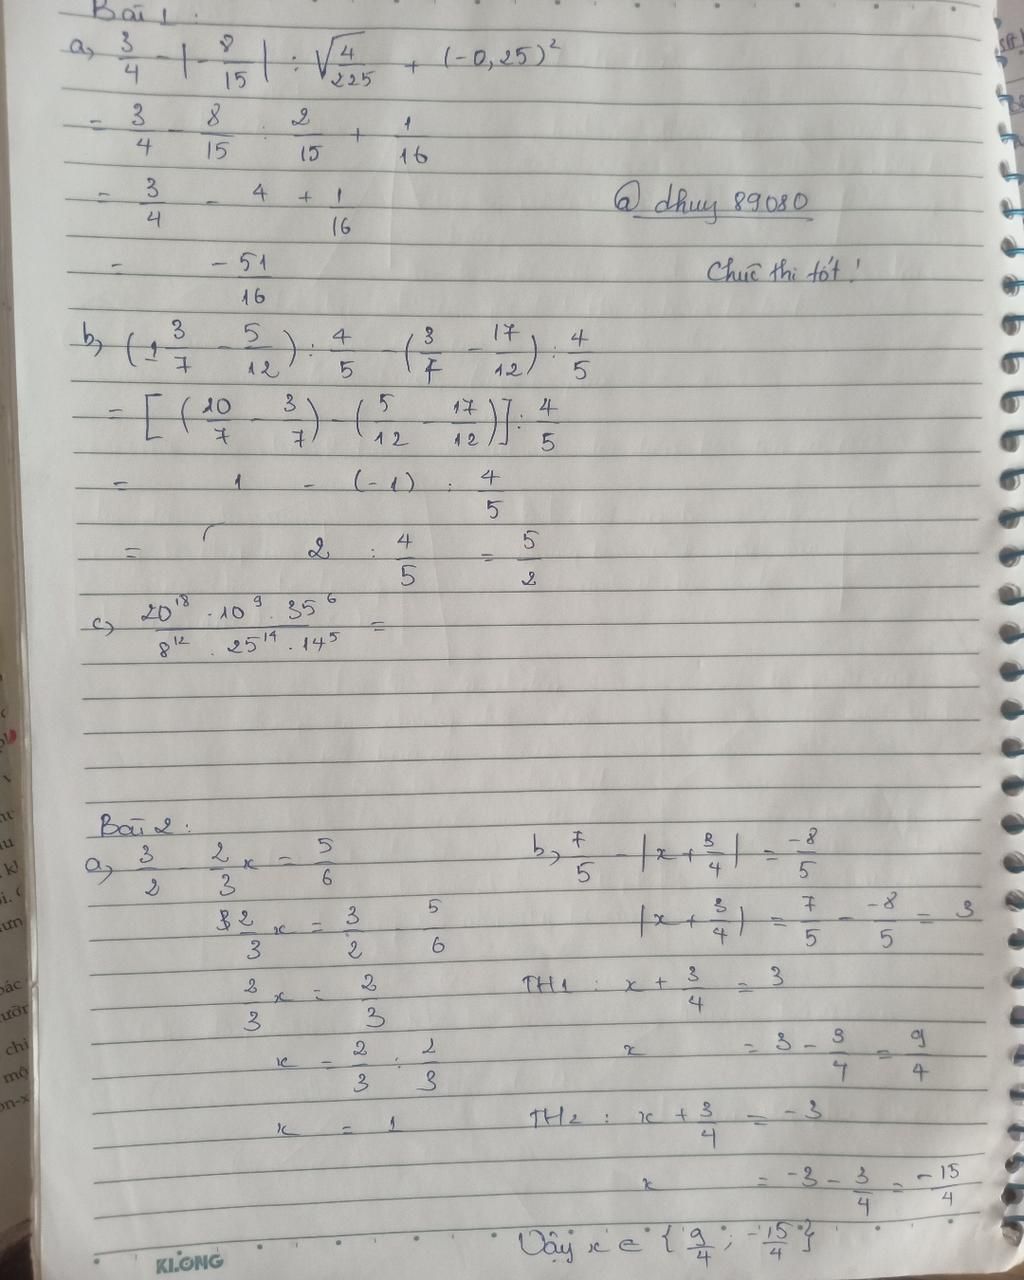 Bài 1:
a, 3/4 - |-8/15| : √(4/225) + (-0,25)²
= 3/4 - 8/15 : 2/15 + 1/16
= 3/4 - 4 + 1/16
@ dhuy 89080
= -51/16
Chúc thi tốt!
b, (1 3/7 - 5/12) : 4/5 - (3/7 - 17/12) : 4/5
= [(10/7 - 3/7) - (5/12 - 17/12)] : 4/5
= 1 - (-1) : 4/5
= 2 : 4/5 = 5/2
c, (20¹⁸ . 10⁹ . 35⁶)/(8¹² . 25¹⁴ . 14⁵) =
Bài 2:
a, 3/2 - 2/3 x = 5/6
2/3 x = 3/2 - 5/6
2/3 x = 2/3
x = 2/3 : 2/3
x = 1
b, 7/5 - |x + 3/4| = -8/5
|x + 3/4| = 7/5 - -8/5 = 3
TH1 : x + 3/4 = 3
x = 3 - 3/4 = 9/4
TH2 : x + 3/4 = -3
x = -3 - 3/4 = -15/4
Vậy x ∈ {9/4 ; -15/4}
KLONG